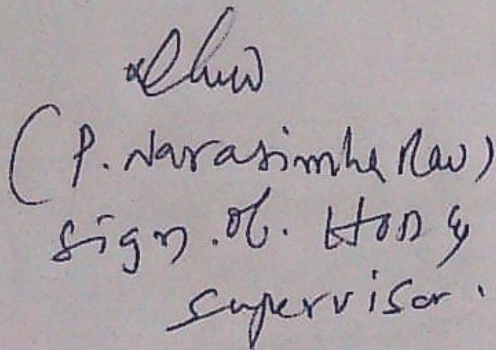 (P. Narasimha Rao)
Sign. of. Hon
Supervisor.